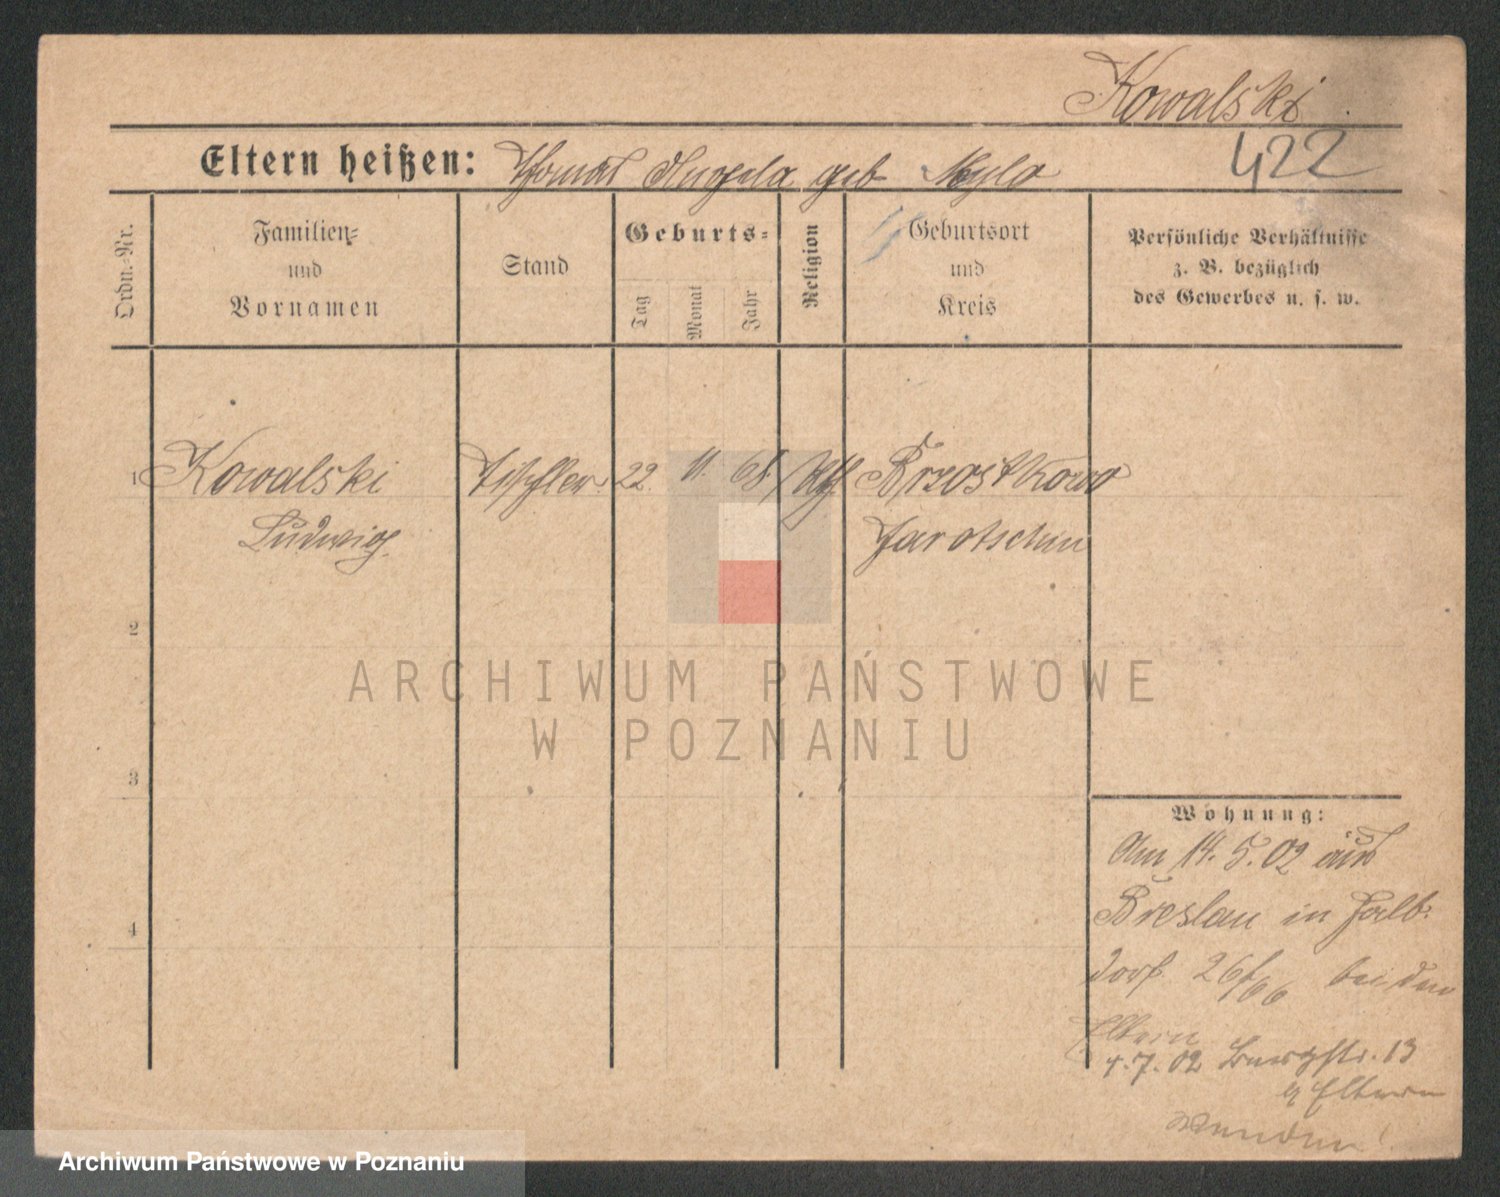 Kowalski
Eltern heißen: Thomas Angela geb Myla
422
Ordn.-Nr.
Familien-
und
Vornamen
Stand
Geburts-
Tag
Monat
Jahr
Religion
Geburtsort
und
Kreis
Persönliche Verhältnisse
z. B. bezüglich
des Gewerbes u. s. w.
1 Kowalski Tischler 22. 11. 68. kth. Brzostkowo
Ludwig Jarotschin
2
3
4
ARCHIWUM PAŃSTWOWE
W POZNANIU
Wohnung:
Am 14. 5. 02 aus
Breslau in Halb-
dorf 26/ bei den
Eltern
4. 7. 02 Burgstr. 13
Eltern
Wenden!
Archiwum Państwowe w Poznaniu